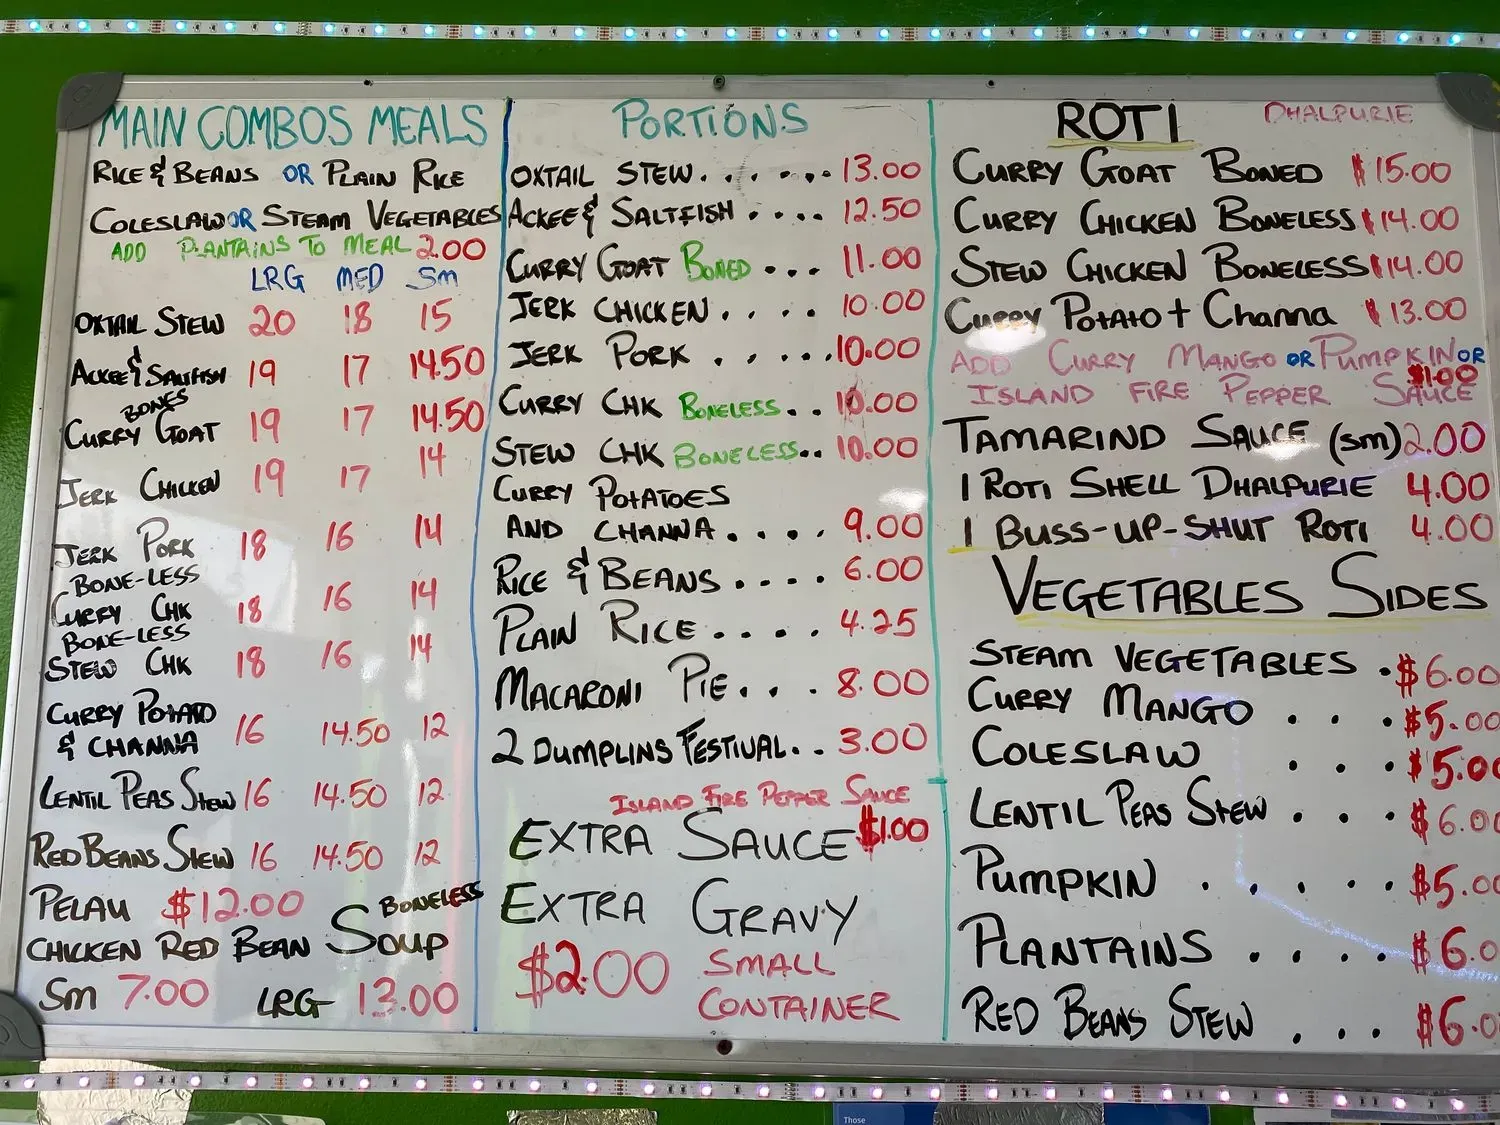 MAIN COMBOS MEALS
RICE & BEANS OR PLAIN RICE
COLESLAW OR STEAM VEGETABLES
ADD PLANTAINS TO MEAL 2.00
LRG MED Sm
OXTAIL STEW 20 18 15
ACKEE & SALTFISH 19 17 14.50
BONES
CURRY GOAT 19 17 14.50
JERK CHICKEN 19 17 14
JERK PORK 18 16 14
BONE-LESS
CURRY CHK 18 16 14
BONE-LESS
STEW CHK 18 16 14
CURRY POTATO
& CHANNA 16 14.50 12
LENTIL PEAS STEW 16 14.50 12
RED BEANS STEW 16 14.50 12
PELAU $12.00
BONELESS
CHICKEN RED BEAN SOUP
Sm 7.00 LRG 13.00
PORTIONS
OXTAIL STEW....... 13.00
ACKEE & SALTFISH .... 12.50
CURRY GOAT BONED ... 11.00
JERK CHICKEN.... 10.00
JERK PORK ..... 10.00
CURRY CHK BONELESS.. 10.00
STEW CHK BONELESS.. 10.00
CURRY POTATOES
AND CHANNA.... 9.00
RICE & BEANS.... 6.00
PLAIN RICE.... 4.25
MACARONI PIE... 8.00
2 DUMPLINS FESTIVAL.. 3.00
ISLAND FIRE PEPPER SAUCE
EXTRA SAUCE $1.00
EXTRA GRAVY
$2.00 SMALL
CONTAINER
ROTI DHALPURIE
CURRY GOAT BONED $15.00
CURRY CHICKEN BONELESS $14.00
STEW CHICKEN BONELESS $14.00
CURRY POTATO + CHANNA $13.00
ADD CURRY MANGO OR PUMPKIN OR
$1.00
ISLAND FIRE PEPPER SAUCE
TAMARIND SAUCE (sm) 2.00
1 ROTI SHELL DHALPURIE 4.00
1 BUSS-UP-SHUT ROTI 4.00
VEGETABLES SIDES
STEAM VEGETABLES . $6.00
CURRY MANGO ... $5.00
COLESLAW ... $5.00
LENTIL PEAS STEW ... $6.00
PUMPKIN ..... $5.00
PLANTAINS .... $6.0
RED BEANS STEW ... $6.0
Those